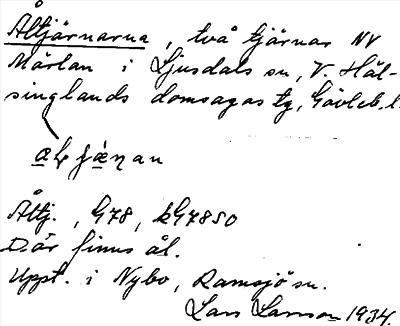 Åltjärnarna, två tjärnar NV
Mårlan i Ljusdals sn, V. Häl-
singlands domsagas tg, Gävleb. l.
Åltj., G78, kG78SO
Där finns ål.
Uppt. i Nybo, Ramsjö sn.
Lars Larsson 1934.